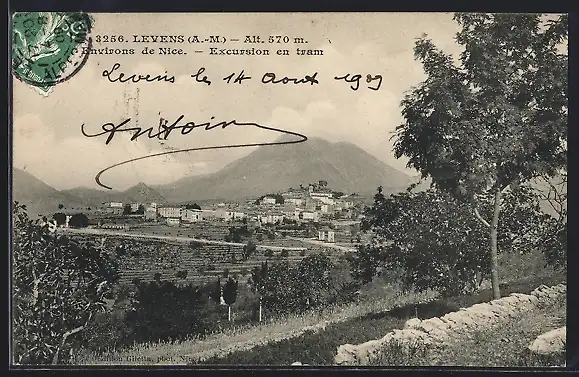 3256. LEVENS (A.-M.) – Alt. 570 m.
Environs de Nice. – Excursion en tram
Levens le 14 Aout 1909
Antoin
Edition Giletta, phot. Nice